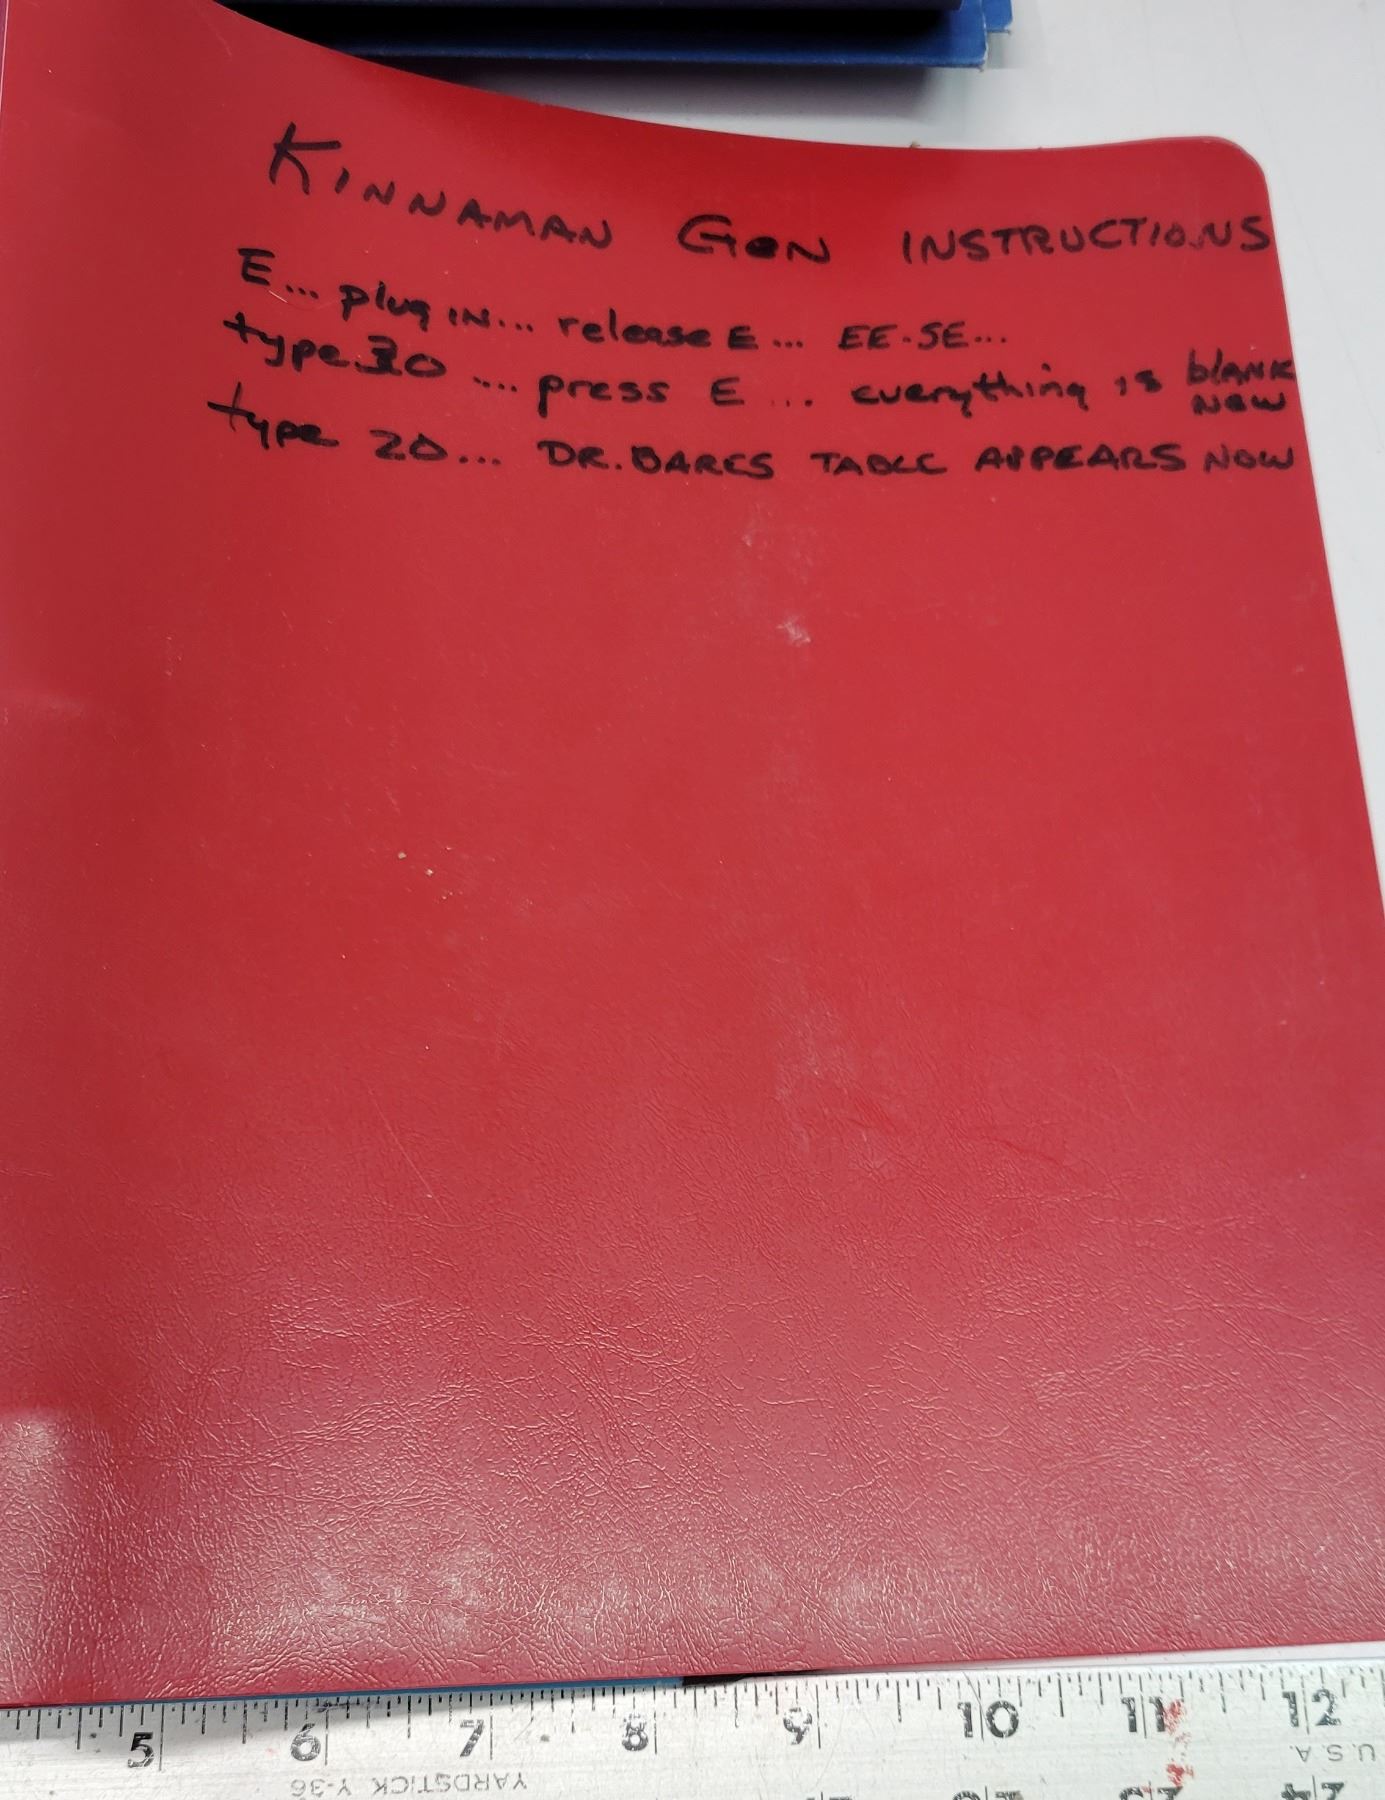 KINNAMAN GEN INSTRUCTIONS
E... plug IN... release E... EE-SE...
type 30 .... press E ... everything is blank NOW
type 20... DR. BARES TABLE APPEARS NOW
5 6 7 8 9 10 11 12
YARDSTICK Y-36
U.S.A.